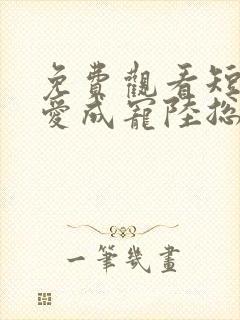 免費觀看短
愛成寵陸總
一筆幾畫